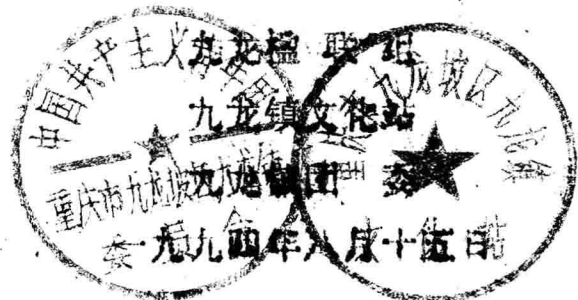 九龙楹联组
九龙镇文化站
九龙镇团委
一九九四年八月十五日
中国共产主义青年团
重庆市九龙坡区九龙镇
委员会
重庆市九龙坡区九龙镇
文化站